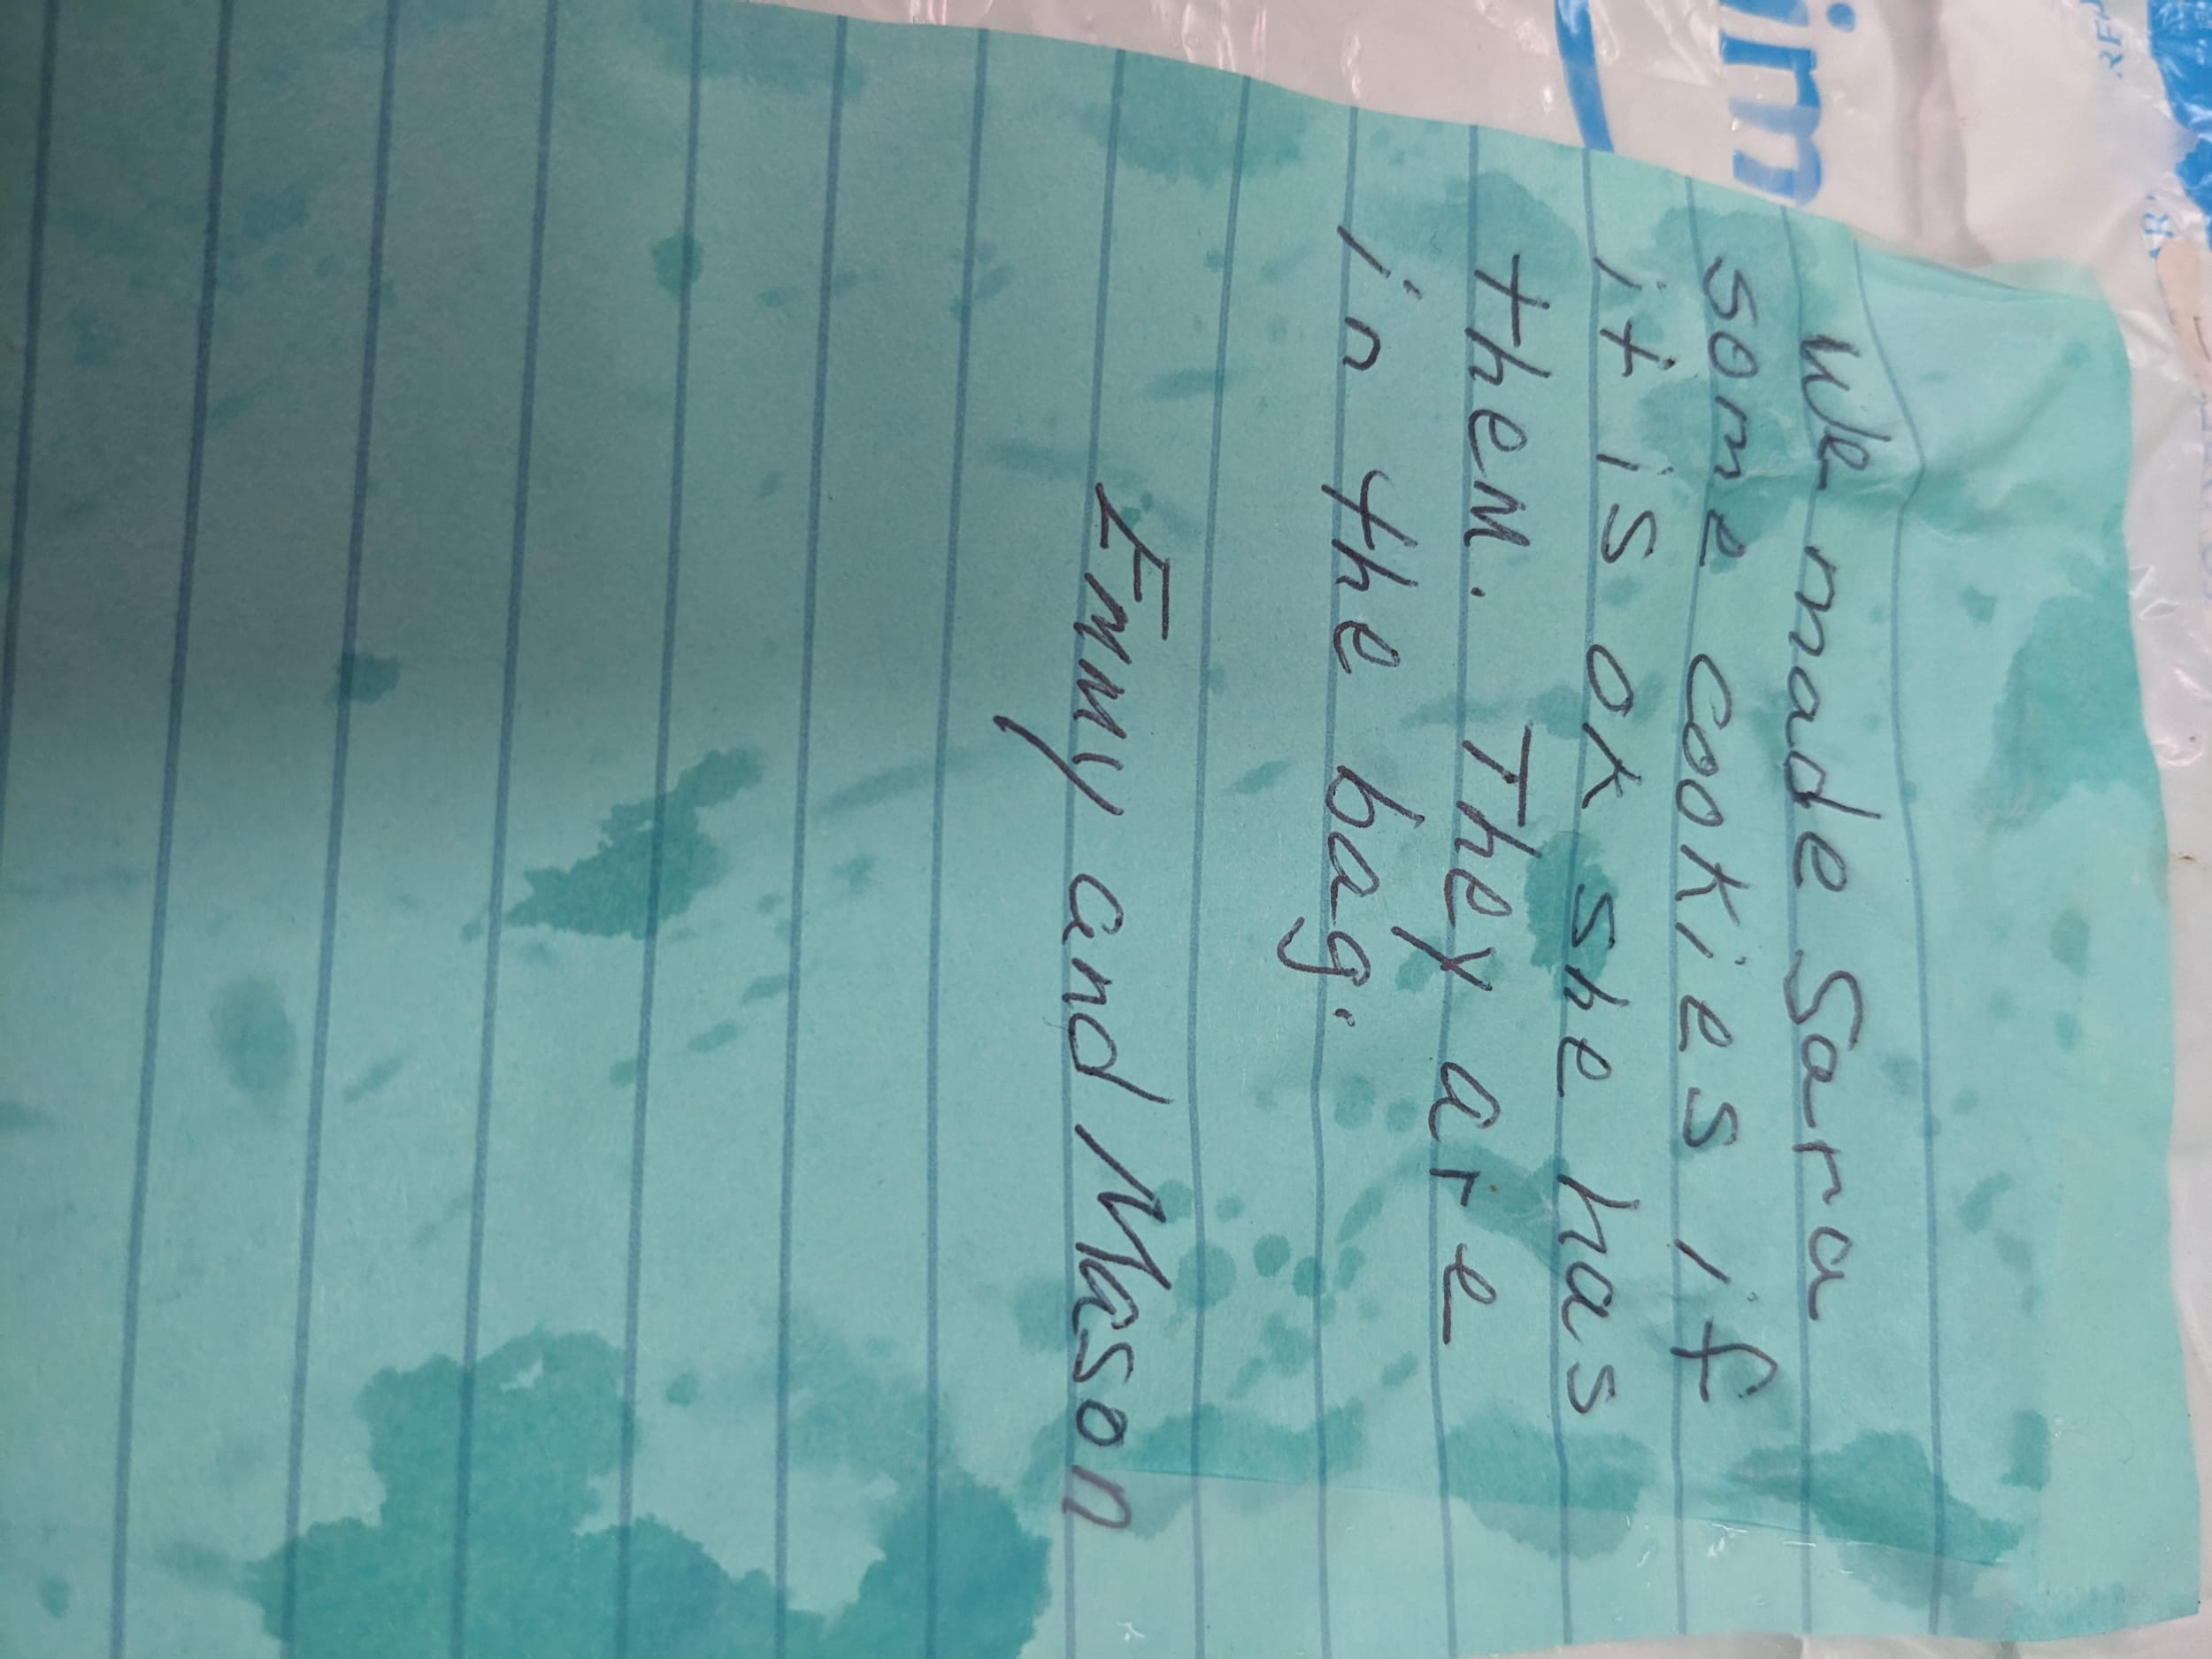 We made Sara
some cookies if
it is ok she has
them. They are
in the bag.
Emmy and Mason
im